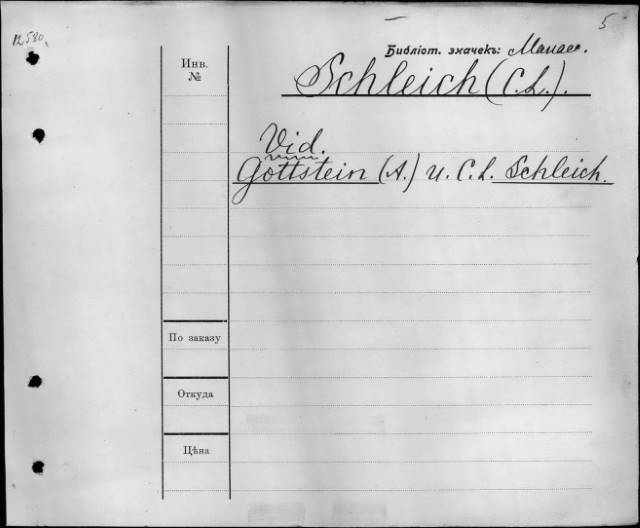 12580.
5
Библіот. значекъ:
Инв. №
Schleich (C.L.).
Vid.
Gottstein (A.) u. C.L. Schleich.
По заказу
Откуда
Цѣна